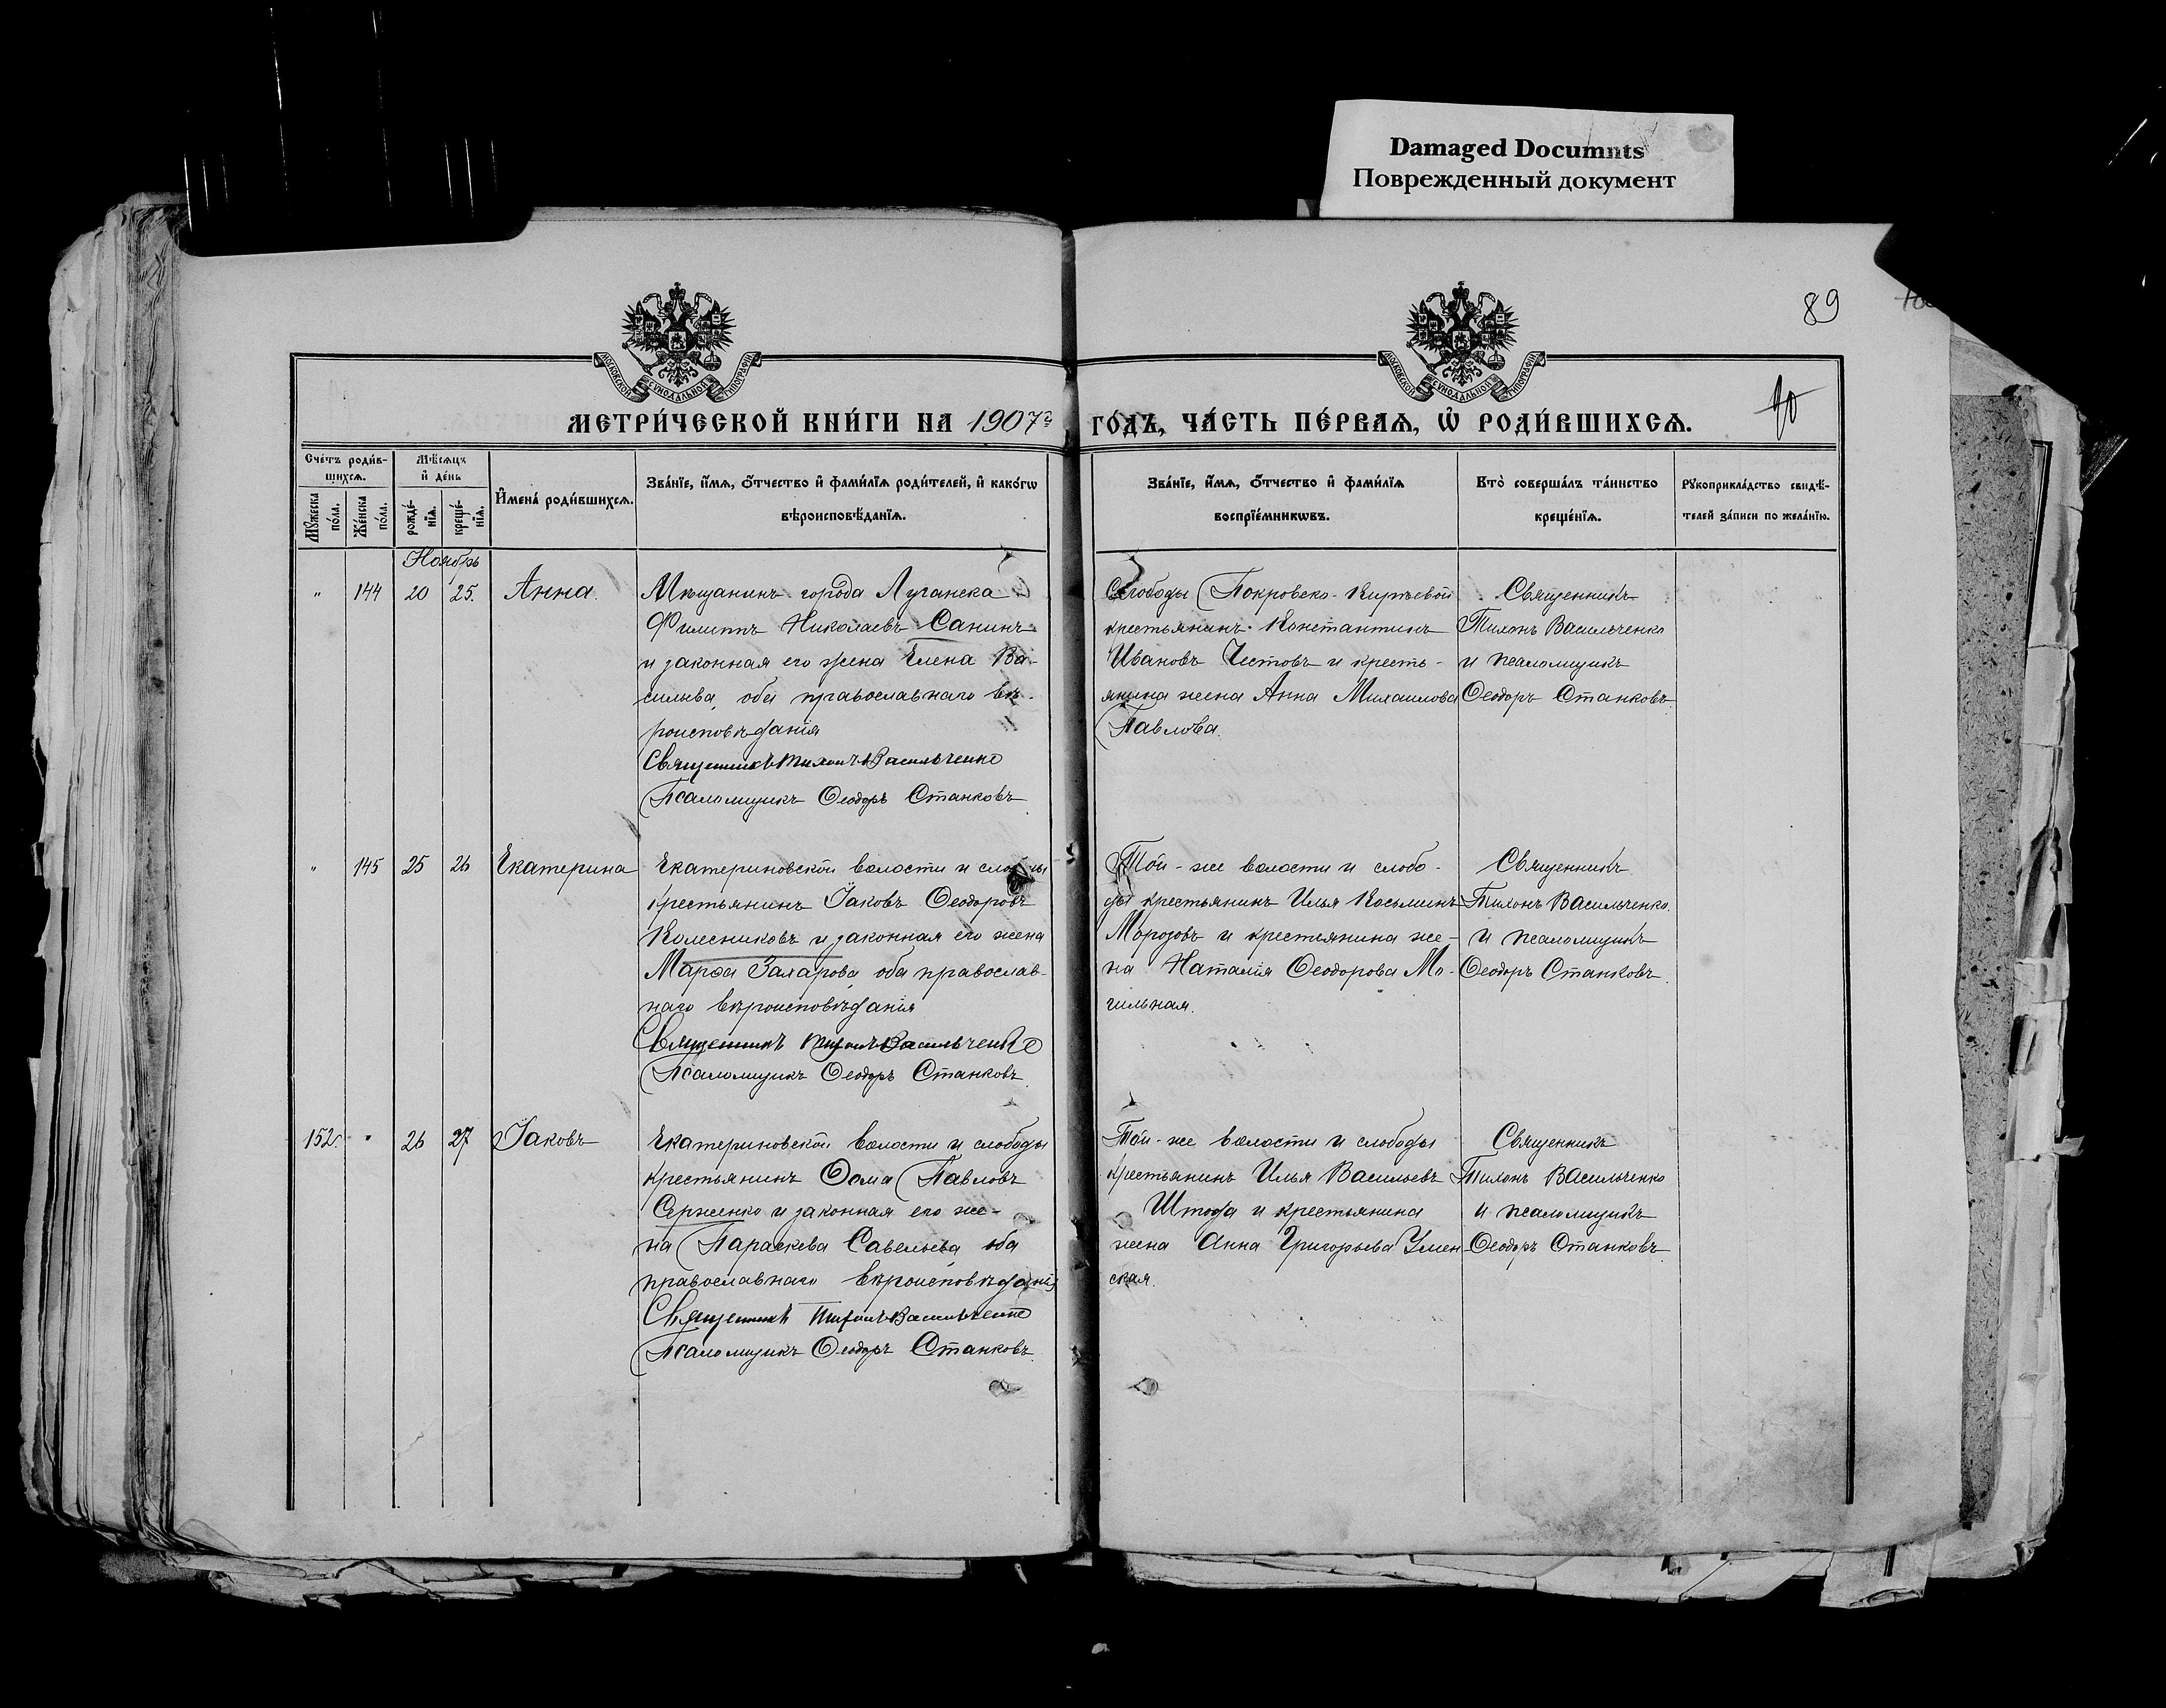 Damaged Documnts
Поврежденный документ
89
90
МОСКОВСКОЙ СѴНОДАЛЬНОЙ ТИПОГРАФІИ
МОСКОВСКОЙ СѴНОДАЛЬНОЙ ТИПОГРАФІИ
МЕТРИ́ЧЕСКОЙ КНИ́ГИ НА 1907й ГО́ДЪ, ЧА́СТЬ ПЕ́РВАѦ, Ѡ҆ РОДИ́ВШИХСѦ.
Сче́тъ роди́вшихсѧ.
Мꙋ́жеска по́ла.
Же́нска по́ла.
Мѣ́сѧцъ и҆ де́нь
рожде́нїѧ.
креще́нїѧ.
И҆мена̀ роди́вшихсѧ.
Зва́нїе, и҆́мѧ, ѻ҆́тчество и҆ фами́лїѧ роди́телей, и҆ како́гѡ
вѣроисповѣ́данїѧ.
Зва́нїе, и҆́мѧ, ѻ҆́тчество и҆ фами́лїѧ
воспрїе́мникѡвъ.
Кто̀ соверша́лъ та́инство
креще́нїѧ.
Рꙋкоприкла́дство свидѣ́-
телей за́писи по жела́нїю.
Ноябрь
" 144 20 25. Анна.
Мѣщанинъ города Луганска
Филиппъ Николаевъ Санинъ
и законная его жена Елена Ва-
сильева, оба православнаго вѣ-
роисповѣданія
Священникъ Тихонъ Васильченко
Псаломщикъ Ѳеодоръ Станковъ
Слободы Покровско-Киръевой
крестьянинъ Константинъ
Ивановъ Чистовъ и кресть-
янина жена Анна Михаилова
Павлова.
Священникъ
Тихонъ Васильченко
и псаломщикъ
Ѳеодоръ Станковъ.
" 145 25 26 Екатерина
Екатериновской волости и слободы
крестьянинъ Іаковъ Ѳеодоровъ
Колесниковъ и законная его жена
Марѳа Захарова, оба православ-
наго вѣроисповѣданія
Священникъ Тихонъ Васильченко
Псаломщикъ Ѳеодоръ Станковъ.
Той-же волости и слобо-
ды крестьянинъ Илья Косьминъ
Морозовъ и крестьянина же-
на Наталія Ѳеодорова Мо-
гильная.
Священникъ
Тихонъ Васильченко.
и псаломщикъ
Ѳеодоръ Станковъ.
152. " 26 27 Іаковъ
Екатериновской волости и слободы
крестьянинъ Ѳома Павловъ
Серженко и законная его же-
на Параскева Савельева, оба
православнаго вѣроисповѣданія
Священникъ Тихонъ Васильченко
Псаломщикъ Ѳеодоръ Станковъ.
Той-же волости и слободы
крестьянинъ Илья Васильевъ
Штода и крестьянина
жена Анна Григорьева
ская.
Священникъ
Тихонъ Васильченко
и псаломщикъ
Ѳеодоръ Станковъ.